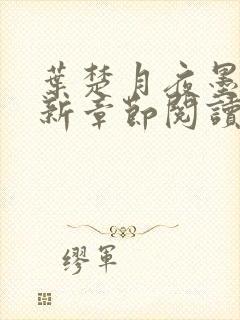 葉楚月夜墨
新章節閱讀
繆軍